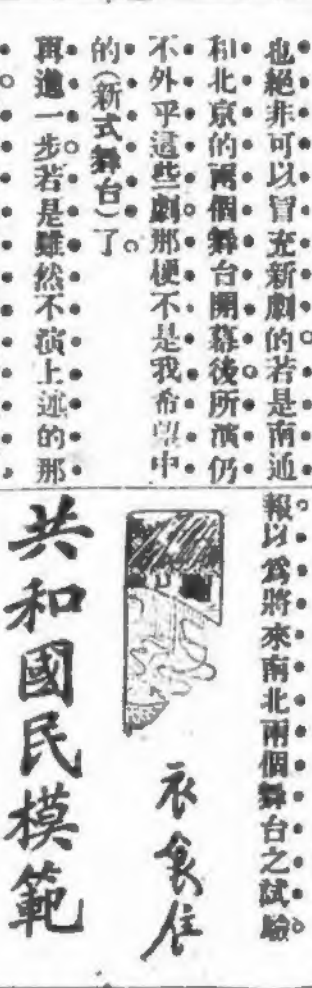 也絕非可以冒充新劇的若是南通
和北京的兩個舞台開幕後所演仍
不外乎這些劇那梗不是我希望中
的(新式舞台)了。
再進一步若是雖然不演上述的那
報以為將來南北兩個舞台之試驗
衣食住
共和國民模範